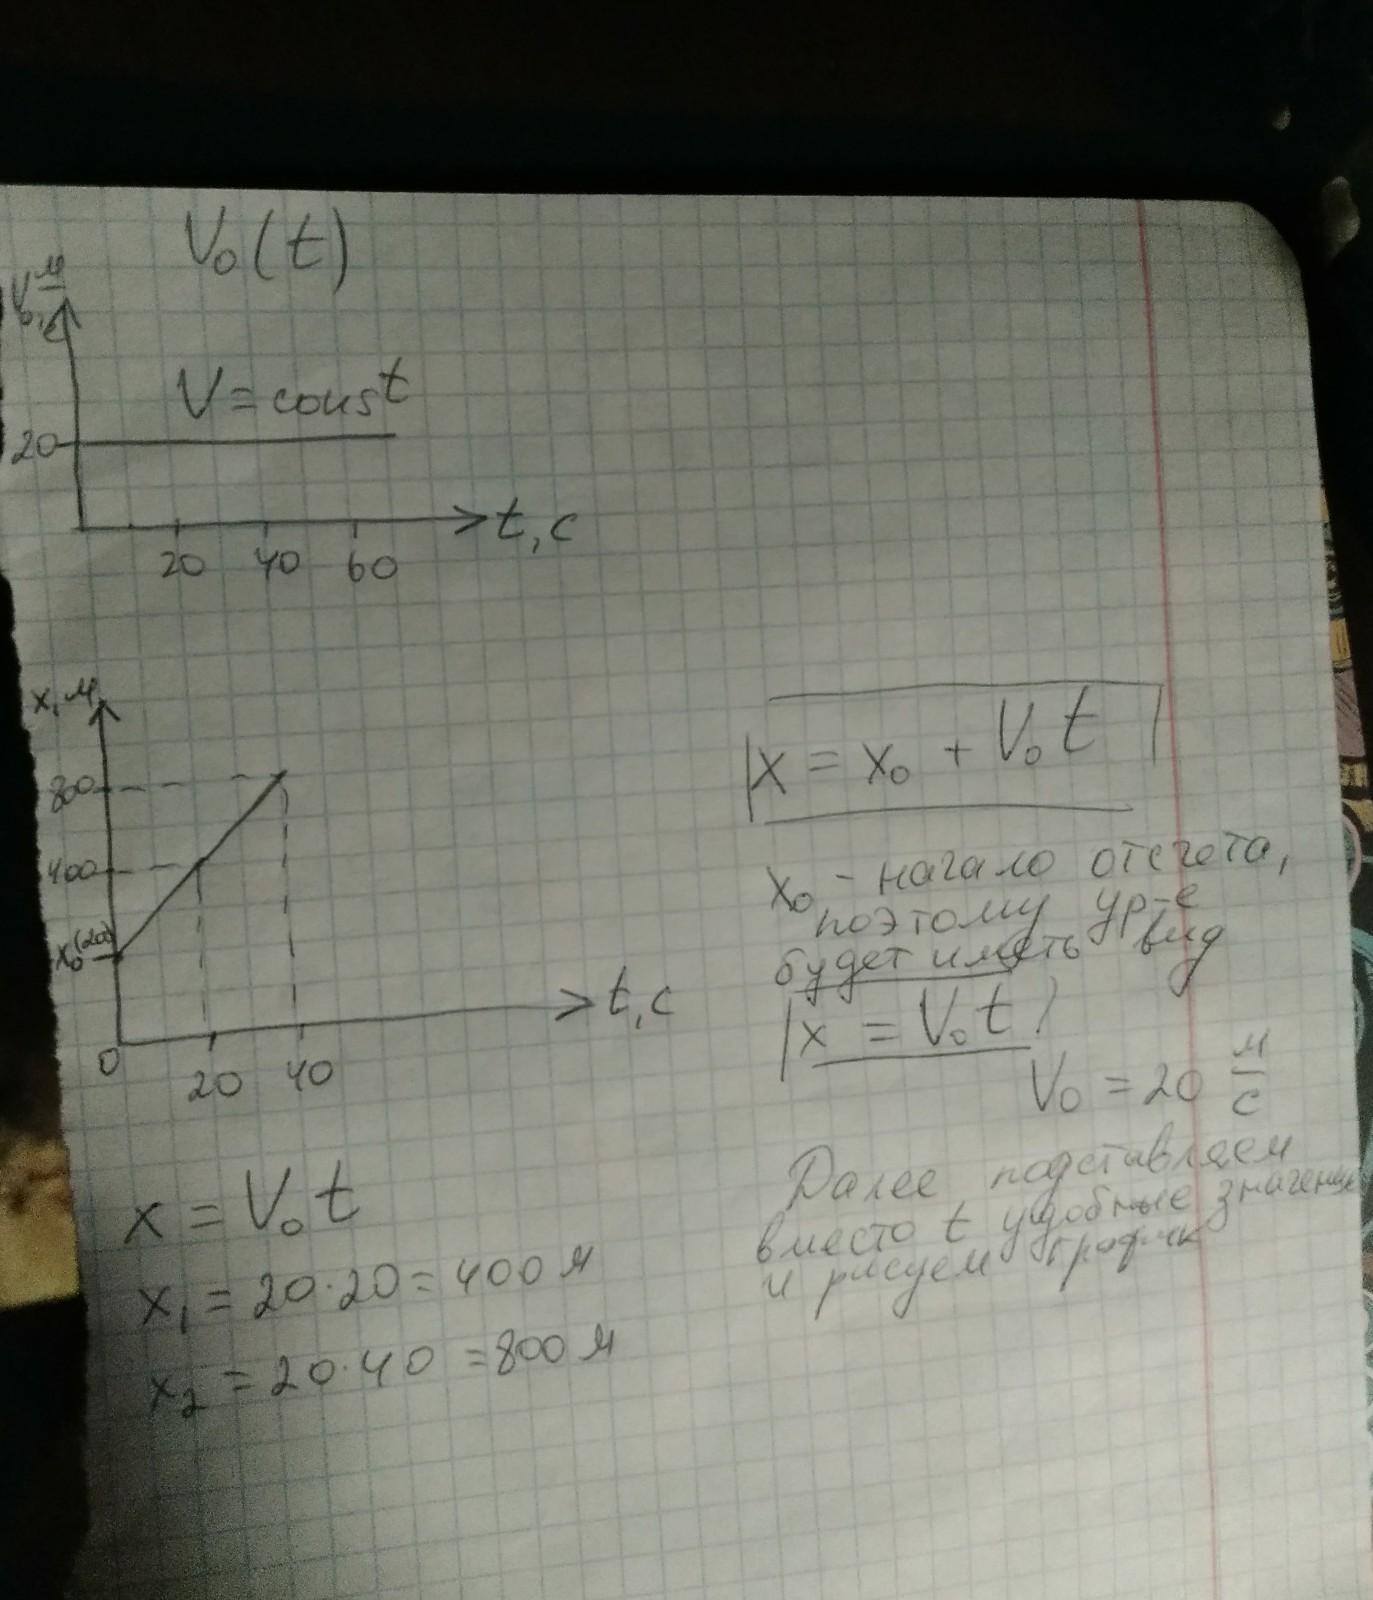 V₀(t)
V₀, м/с
V = const
20
t, с
20 40 60
x, м
800
400
x₀ (20)
0
20 40
t, с
x = x₀ + V₀ t
x₀ - начало отсчета,
поэтому ур-е
будет иметь вид
x = V₀ t
V₀ = 20 м/с
Далее, подставляем
вместо t удобные значения
и рисуем график
x = V₀ t
x₁ = 20·20 = 400 м
x₂ = 20·40 = 800 м